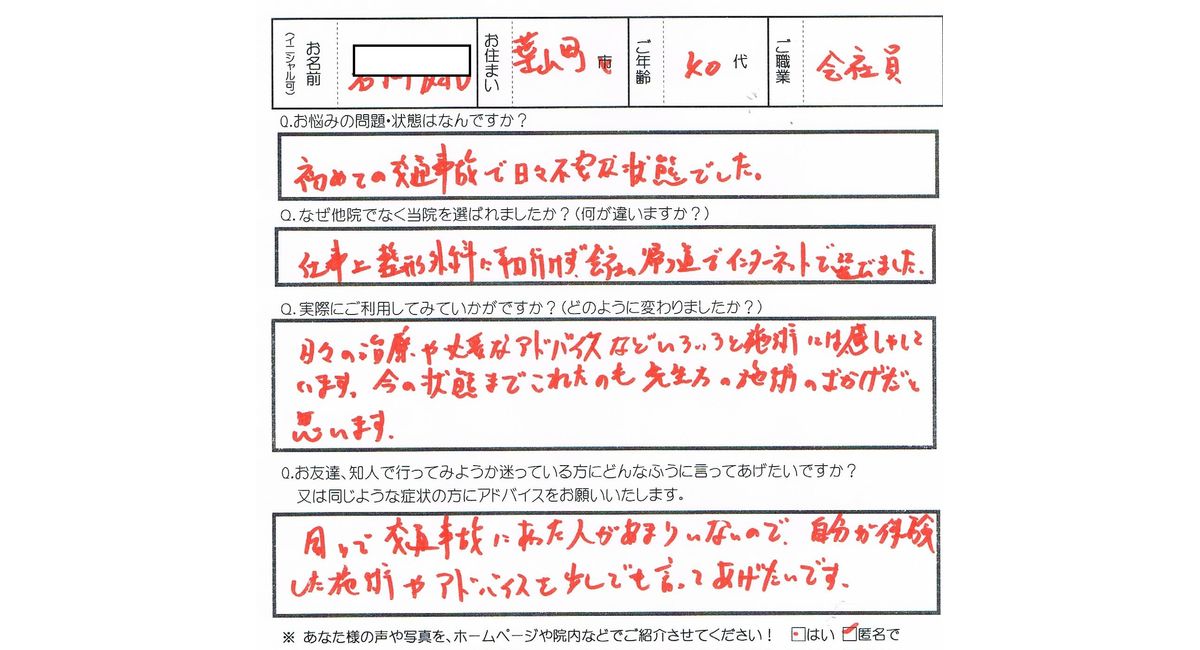 お名前
(イニシャル可)
お住まい
葉山町
市
ご年齢
40代
ご職業
会社員
Q.お悩みの問題・状態はなんですか？
初めての交通事故で日々不安な状態でした。
Q.なぜ他院でなく当院を選ばれましたか？(何が違いますか？)
仕事上整形外科に行けず、会社の帰り道でインターネットで選びました。
Q.実際にご利用してみていかがですか？(どのように変わりましたか？)
日々の治療やなアドバイスなどいろいろと施術には感しゃして
います。今の状態までこれたのも先生方の施術のおかげだと
思います。
Q.お友達、知人で行ってみようか迷っている方にどんなふうに言ってあげたいですか？
又は同じような症状の方にアドバイスをお願いいたします。
周りで交通事故にあった人があまりいないので、自分が体験
した施術やアドバイスを少しでも言ってあげたいです。
※ あなた様の声や写真を、ホームページや院内などでご紹介させてください！ はい 匿名で